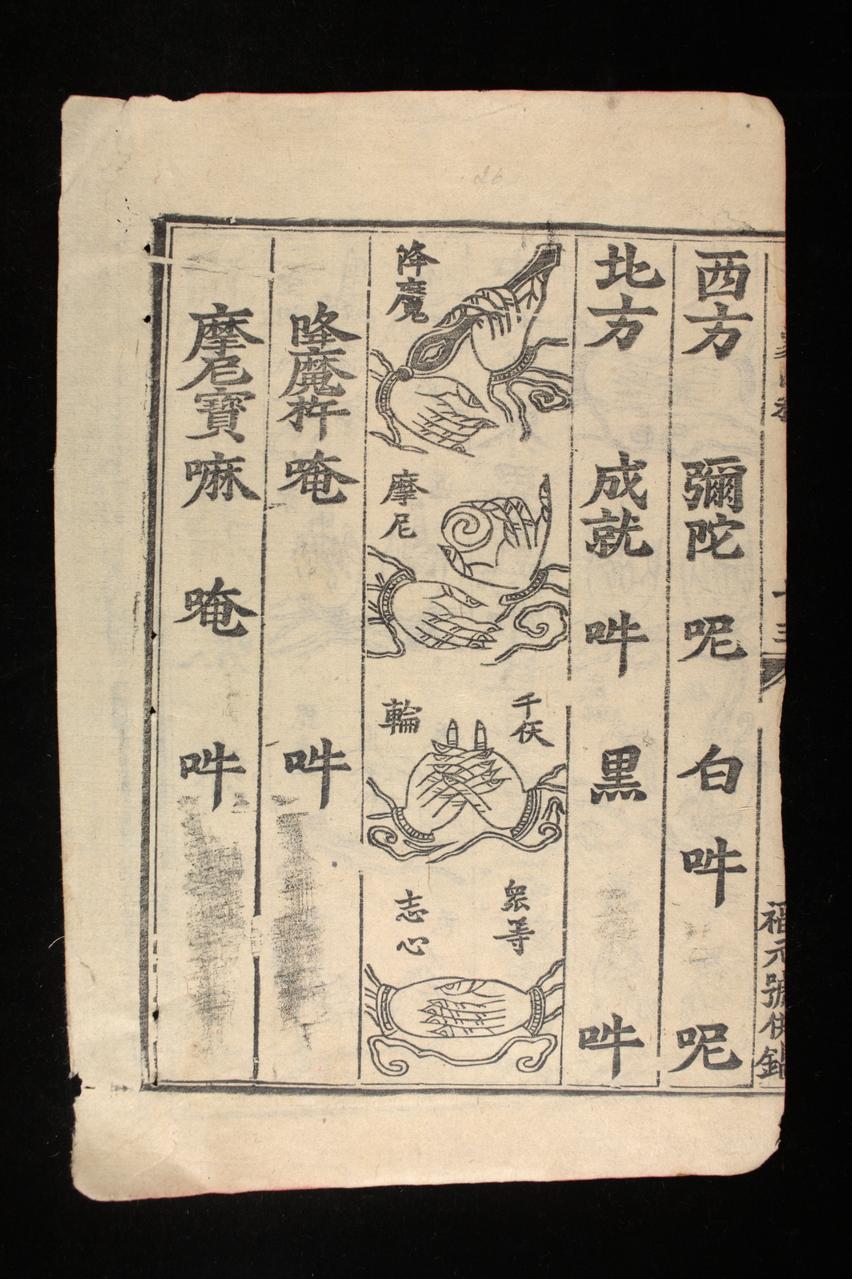 十三
福元號
西方 彌陀 呢 白 吽 呢
北方 成就 吽 黑 吽
降魔
摩尼
千伏
輪
眾等
志心
降魔杵 唵 吽
摩尼寶 嘛 唵 吽